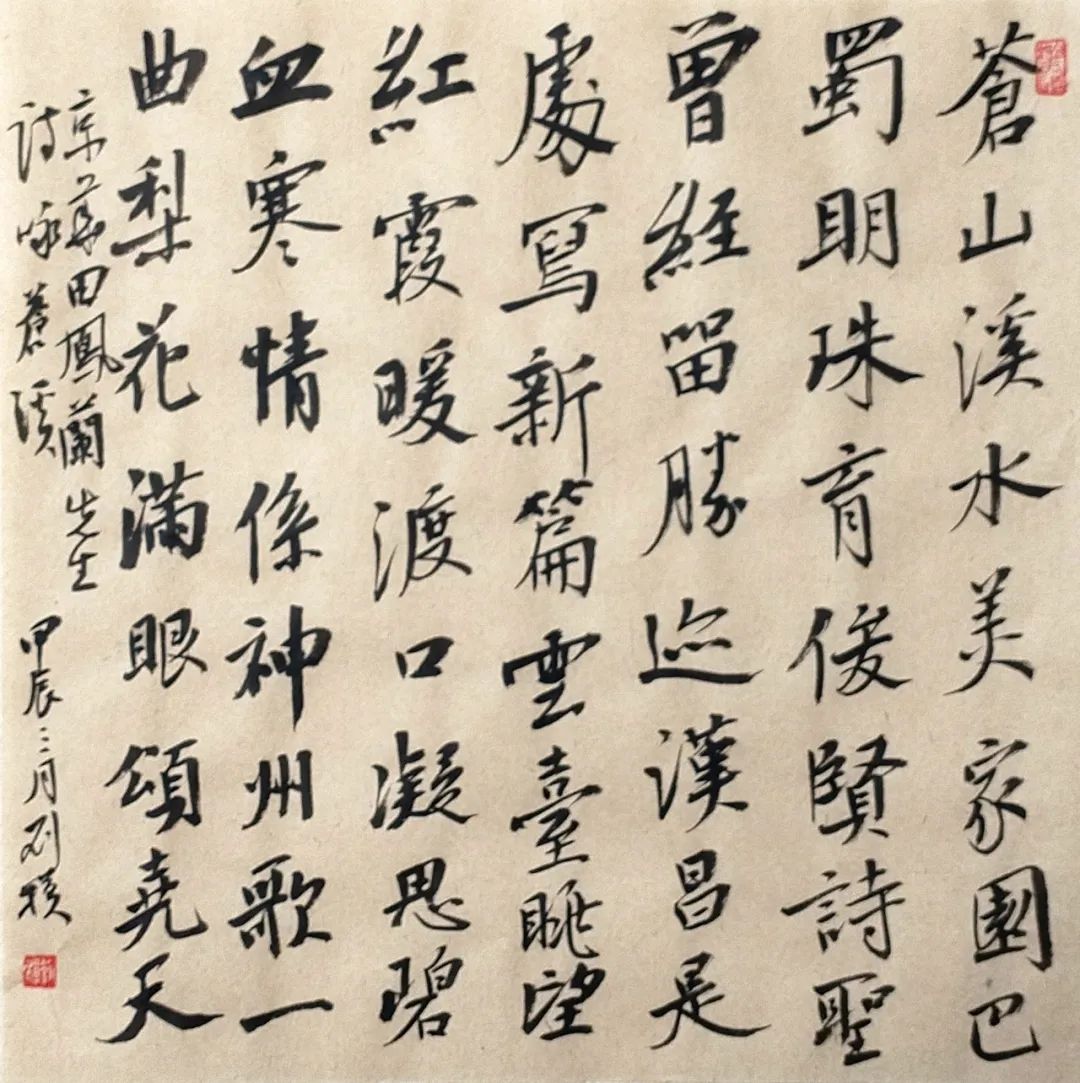 蒼山溪水美家園巴
蜀明珠育俊賢詩聖
曾經留勝迹漢昌是
處寫新篇雲臺眺望
紅霞暖渡口凝思碧
血寒情係神州歌一
曲梨花滿眼頌堯天
京華田鳳蘭先生
詩咏蒼溪 甲辰三月刘璞